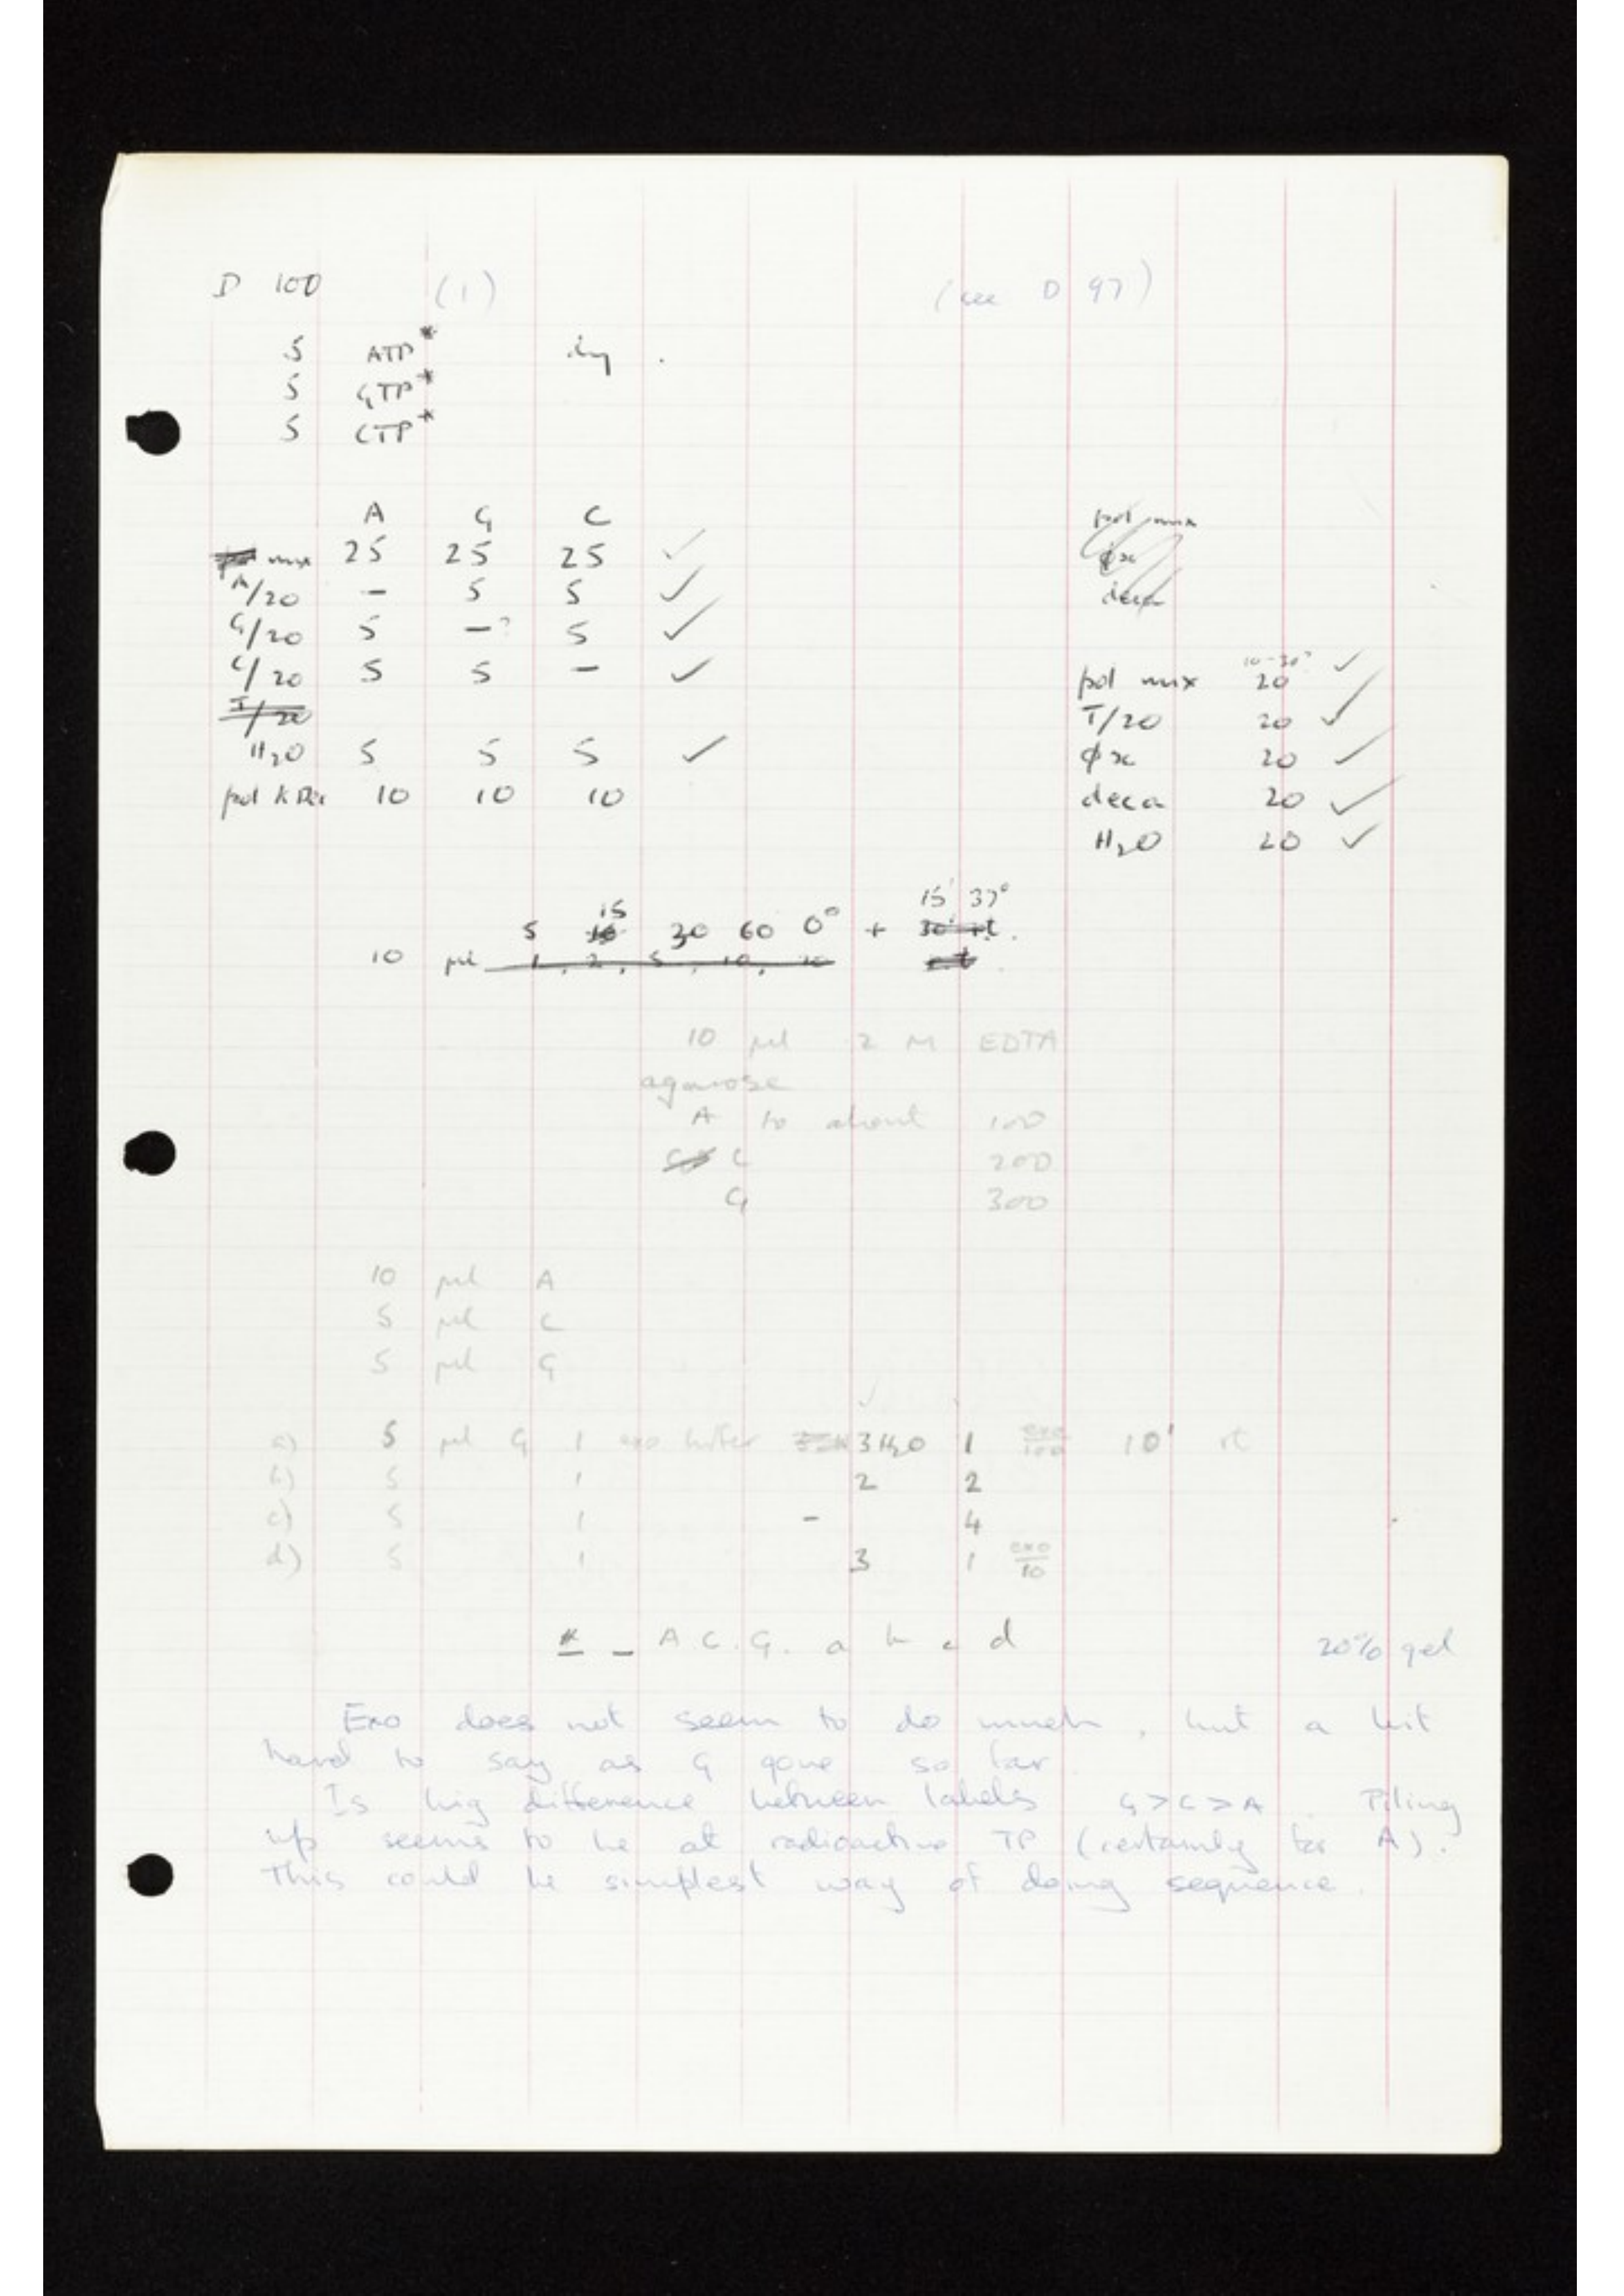 D 100 (1) (see D 97)
5 ATP*
5 GTP*
5 CTP*
A G C
mix 25 25 25 ✓
A/20 – 5 5 ✓
G/20 5 –? 5 ✓
C/20 5 5 – ✓
T/20
H2O 5 5 5 ✓
pol 10 10 10
pol mix
φx
deca
pol mix 20 ✓
T/20 20 ✓
φx 20 ✓
deca 20 ✓
H2O 20 ✓
15 15' 37°
5 30 60 0° + 30' rt.
10 µl 1, 2, 5, 10,
10 µl .2 M EDTA
agarose
A to about 100
C 200
G 300
10 µl A
5 µl C
5 µl G
a) 5 µl G 1 exo buffer 3 H2O 1 exo/100 10' rt
b) 5 1 2 2
c) 5 1 – 4
d) 5 1 3 1 exo/10
– A C. G. a b c d 20% gel
Exo does not seem to do much, but a bit
hard to say as G gone so far.
Is big difference between labels G>C>A. Piling
up seems to be at radioactive TP (certainly for A).
This could be simplest way of doing sequence.